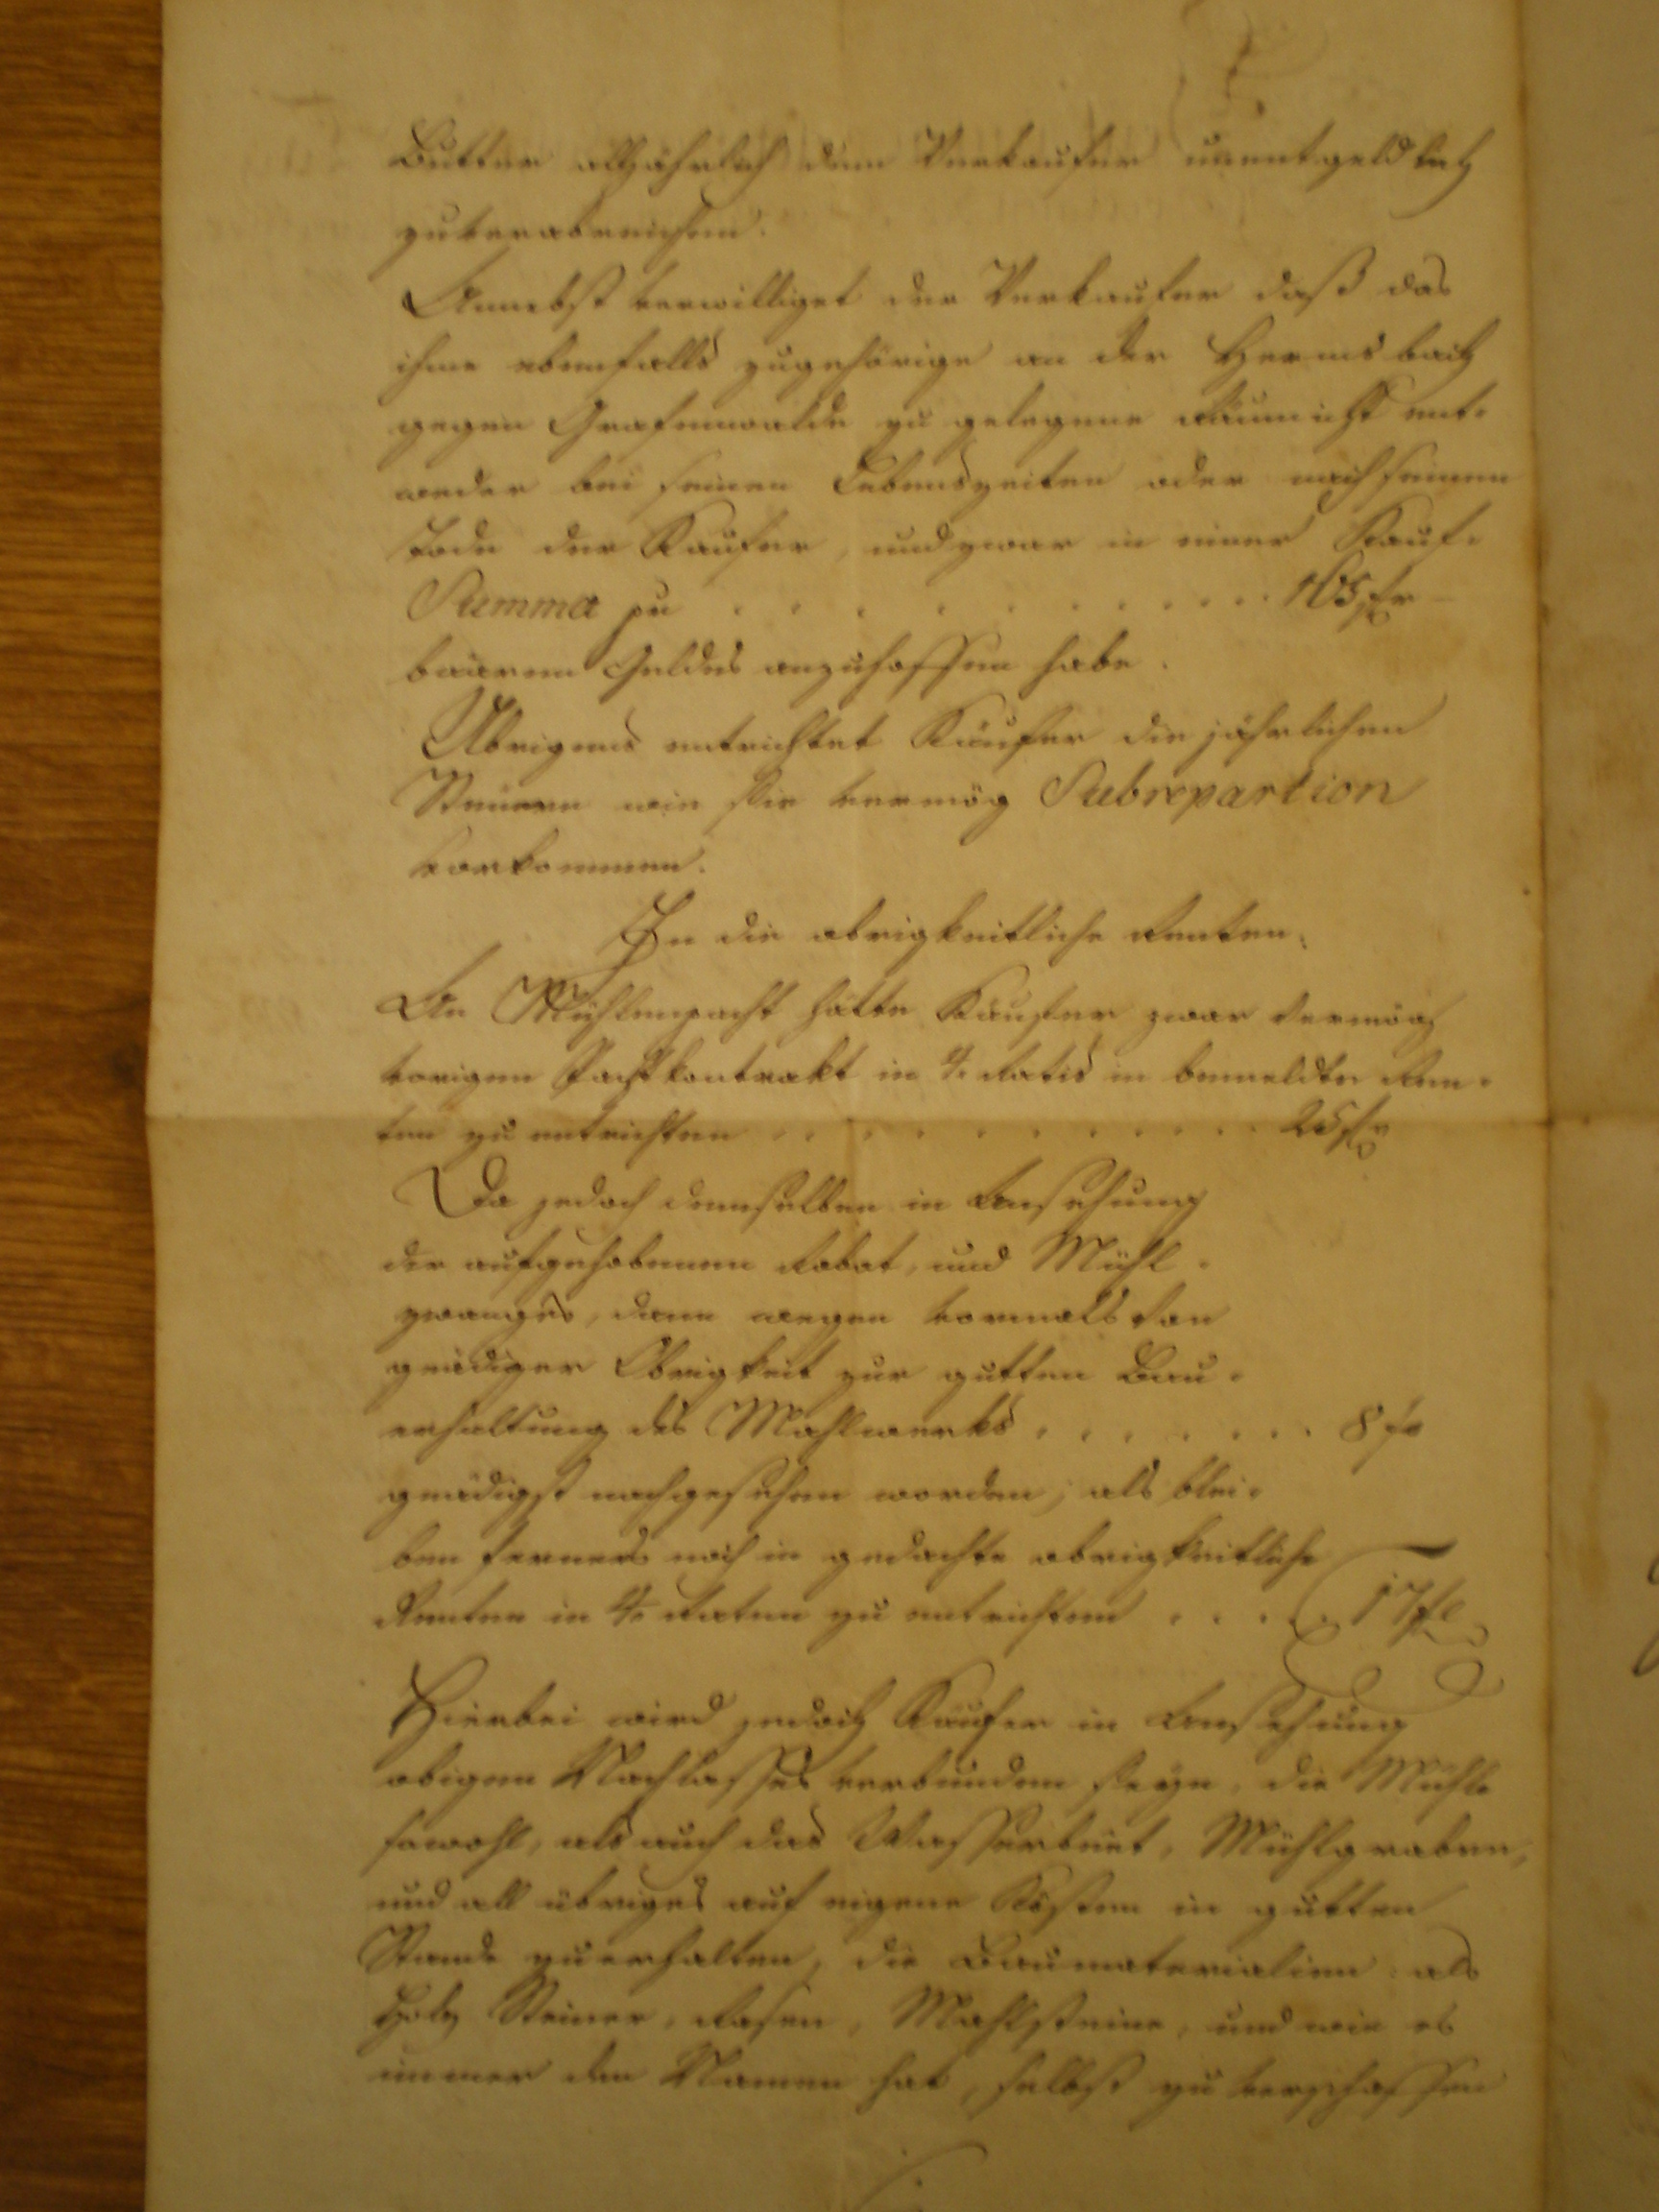 Butter alljährlich dem Verkaufer unentgeldlich
zuverabreichen.
Annebst verwilliget der Verkaufer daß das
ihme ebenfalls zugehörige an der Hermsbach
gegen Grafenwalde zu gelegene Räumicht ent-
weder bei seinen Lebenszeiten oder nach seinem
Tode der Kaufer, und zwar in einer Kauf-
Summa zu . . . . . . . . . . 165 fr
baaren Geldes anzuhoffen habe.
Übrigens entrichtet Käufer die jährlichen
Steuern wie sie vermög Subrepartion
vorkommen.
In die obrigkeitliche Renten.
An Mühlenpacht hätte Käufer zwar vermög
vorigen Pachtkontrakt in 4. Ratis in bemeldte Ren-
ten zu entrichten . . . . . . . . . . 25 fr
Da jedoch demselben in Ansehung
der aufgehobenen Robot, und Mühl-
zwanges, dann wegen vormals von
gnädiger Obrigkeit zur gutten Bau-
erhaltung des Mahlwerks . . . . . . . 8 fr
gnädigst nachgesehen worden, als blei-
ben ferners noch in gedachte obrigkeitliche
Renten in 4. Raten zu entrichten . . . . 17 fr
Hierbei wird jedoch Käufer in Ansehung
obigen Nachlasses verbunden seyn, die Mühle
sowohl, als auch das Wasserbeet, Mühlgraben,
und all übriges auf eigene Kösten in gutten
Stande zu erhalten, die Baumaterialien als
Holz Steiner, Rasen, Mahlsteine, und wie es
immer den Namen hat, selbst zu verschaffen